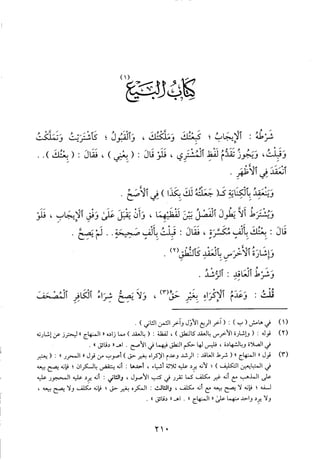 (١)
كتاب البيع
شَرْطُهُ : الْإِيجَابُ ؛ كَبِعْتُكَ وَمَلَّكْتُكَ ، وَالْقَبُولُ ؛ كَاشْتَرَيْتُ وَتَمَلَّكْتُ
وَقَبِلْتُ ، وَيَجُوزُ تَقَدُّمُ لَفْظِ الْمُشْتَرِي ، فَلَوْ قَالَ : ( بِعْنِي ) ، فَقَالَ : ( بِعْتُكَ ) . .
انْعَقَدَ فِي الْأَظْهَرِ .
وَيَنْعَقِدُ بِالْكِنَايَةِ كـ( جَعَلْتُهُ لَكَ بِكَذَا ) فِي الْأَصَحِّ .
وَيُشْتَرَطُ أَلَّا يَطُولَ الْفَصْلُ بَيْنَ لَفْظَيْهِمَا ، وَأَنْ يَقْبَلَ عَلَىٰ وَفْقِ الْإِيجَابِ ، فَلَوْ
قَالَ : بِعْتُكَ بِأَلْفٍ مُكَسَّرَةٍ ، فَقَالَ : قَبِلْتُ بِأَلْفٍ صَحِيحَةٍ . . لَمْ يَصِحَّ .
وَإِشَارَةُ الْأَخْرَسِ بِالْعَقْدِ كَالنُّطْقِ(٢) .
وَشَرْطُ الْعَاقِدِ : الرُّشْدُ .
قُلْتُ : وَعَدَمُ الْإِكْرَاهِ بِغَيْرِ حَقٍّ(٣) ، وَلَا يَصِحُّ شِرَاءُ الْكَافِرِ الْمُصْحَفَ
(١) في هامش ( ب ) : ( آخر الربع الأول وآخر الثمن الثاني ) .
(٢) قوله : ( وإشارة الأخرس بالعقد كالنطق ) ، لفظة : ( بالعقد ) مما زاده « المنهاج » ليحترز عن إشارته
في الصلاة وبالشهادة ، فليس لها حكم النطق فيهما في الأصح . اهـ « دقائق » .
(٣) قول « المنهاج » : ( شرط العاقد : الرشد وعدم الإكراه بغير حق ) أصوب من قول « المحرر » : ( يعتبر
في المتبايعين التكليف ) ؛ لأنه يرد عليه ثلاثة أشياء ، أحدها : أنه ينتقض بالسكران ؛ فإنه يصح بيعه
على المذهب مع أنه غير مكلف كما تقرر في كتب الأصول ، والثاني : أنه يرد عليه المحجور عليه
لسفه ؛ فإنه لا يصح بيعه مع أنه مكلف ، والثالث : المكره بغير حق ؛ فإنه مكلف لا يصح بيعه ،
ولا يرد واحد منها على « المنهاج » . اهـ « دقائق » .
٢١٠